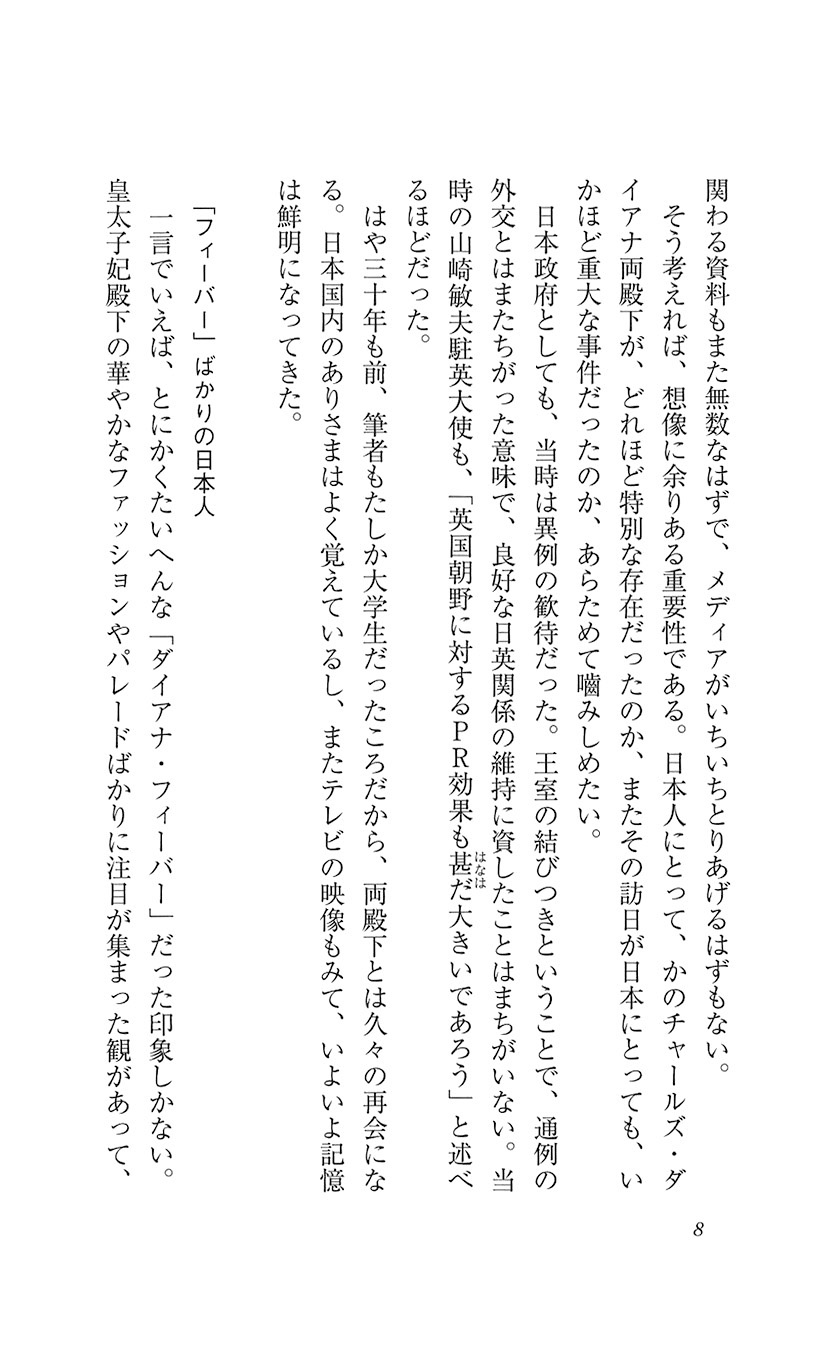 関わる資料もまた無数なはずで、メディアがいちいちとりあげるはずもない。
そう考えれば、想像に余りある重要性である。日本人にとって、かのチャールズ・ダ
イアナ両殿下が、どれほど特別な存在だったのか、またその訪日が日本にとっても、い
かほど重大な事件だったのか、あらためて嚙みしめたい。
日本政府としても、当時は異例の歓待だった。王室の結びつきということで、通例の
外交とはまたちがった意味で、良好な日英関係の維持に資したことはまちがいない。当
時の山崎敏夫駐英大使も、「英国朝野に対するＰＲ効果も甚だ大きいであろう」と述べ
はなは
るほどだった。
はや三十年も前、筆者もたしか大学生だったころだから、両殿下とは久々の再会にな
る。日本国内のありさまはよく覚えているし、またテレビの映像もみて、いよいよ記憶
は鮮明になってきた。
「フィーバー」ばかりの日本人
一言でいえば、とにかくたいへんな「ダイアナ・フィーバー」だった印象しかない。
皇太子妃殿下の華やかなファッションやパレードばかりに注目が集まった観があって、
8